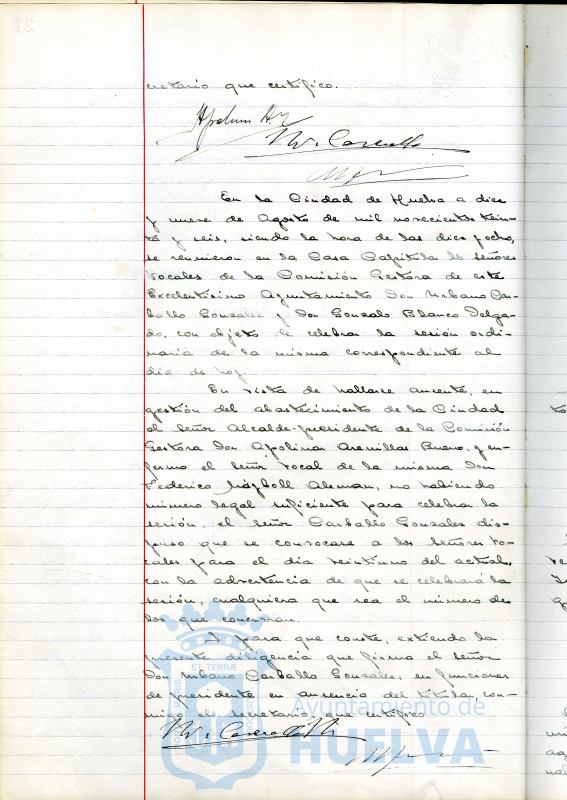 cretario que certifico.
En la Ciudad de Huelva a diez
y nueve de Agosto de mil novecientos trein-
ta y seis, siendo la hora de las diez y ocho,
se reunieron en la Casa Capitular los señores
Vocales de la Comisión Gestora de este
Excelentísimo Ayuntamiento Don Urbano Car-
ballo Gonzalez y Don Gonzalo Blanco Delga-
do, con objeto de celebrar la sesión ordi-
naria de la misma correspondiente al
día de hoy.
En vista de hallarse ausente, en
gestión del abastecimiento de la Ciudad
el señor Alcalde-presidente de la Comisión
Gestora Don Apolinar Arenillas Bueno, y en-
fermo el señor vocal de la misma Don
Federico Aleman, no habiendo
número legal suficiente para celebrar la
sesión, el señor Carballo Gonzales dis-
puso que se convocase a los señores vo-
cales para el día veintiuno del actual,
con la advertencia de que se celebrará la
sesión, cualquiera que sea el número de
los que concurran.
Y para que conste, extiendo la
presente diligencia que firma el señor
Don Urbano Carballo Gonzales, en funciones
de presidente en ausencia del titular, con-
migo el secretario, que certifico
U. Carballo
Ayuntamiento de
HUELVA